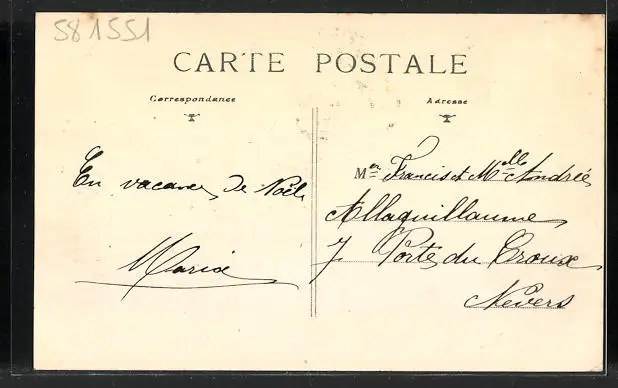 581551
CARTE POSTALE
Correspondance
Adresse
En vacances de Noël
Maria
Mr Francis et Mlle Andrée
Allaquillaume
7 Porte du Croux
Nevers